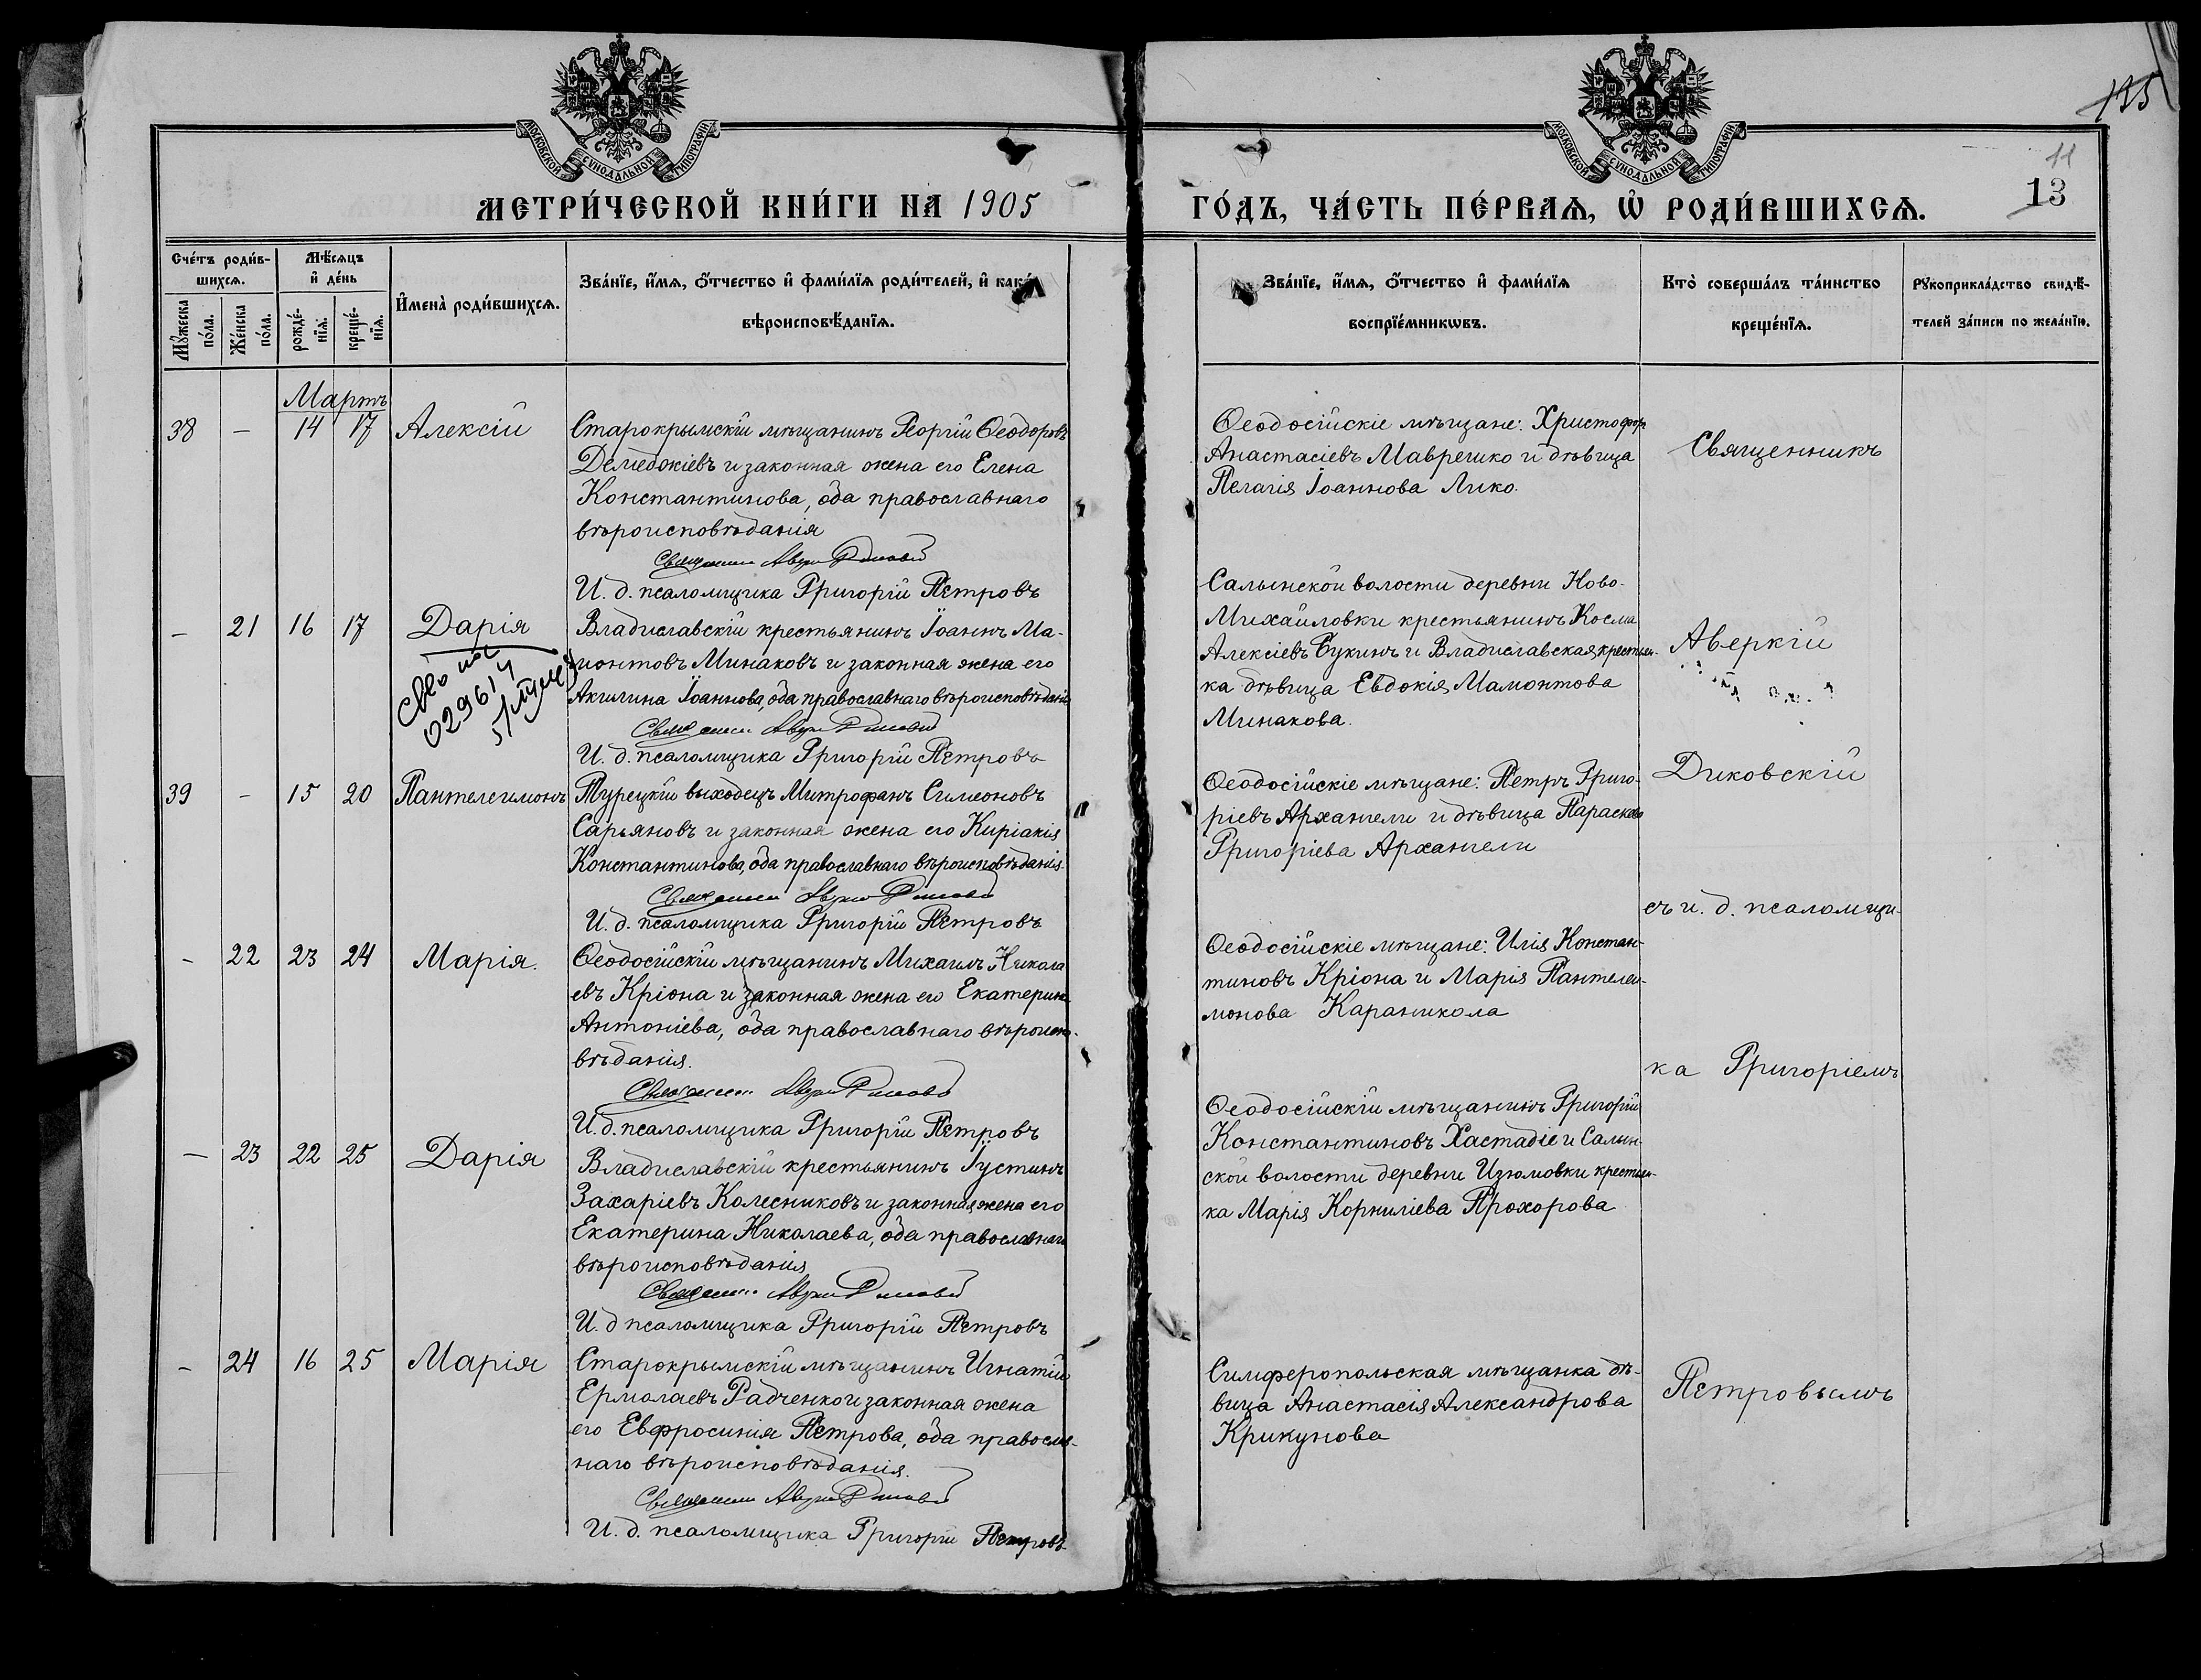 135
11
13
МОСКОВСКОЙ СѴНОДАЛЬНОЙ ТИПОГРАФІИ
МОСКОВСКОЙ СѴНОДАЛЬНОЙ ТИПОГРАФІИ
МЕТРИ́ЧЕСКОЙ КНИ́ГИ НА 1905
ГО́ДЪ, ЧА́СТЬ ПЕ́РВАѦ, Ѡ҆ РОДИ́ВШИХСѦ.
Сче́тъ роди́в-
шихсѧ.
Мꙋ́жеска по́ла.
Же́нска по́ла.
Мѣ́сѧцъ
и҆ де́нь
рожде́-
нїѧ.
креще́-
нїѧ.
И҆мена̀ роди́вшихсѧ.
Зва́нїе, и҆́мѧ, ѻ҆́тчество и҆ фами́лїѧ роди́телей, и҆ како́
вѣроисповѣ́данїѧ.
Зва́нїе, и҆́мѧ, ѻ҆́тчество и҆ фами́лїѧ
воспрїе́мникѡвъ.
Кто̀ соверша́лъ та́инство
креще́нїѧ.
Рꙋкоприкла́дство свидѣ́-
телей за́писи по жела́нїю.
Мартъ
38 – 14 17 Алексій
Старокрымскій мѣщанинъ Георгій Ѳеодоровъ
Демеджіевъ и законная жена его Елена
Константинова, оба православнаго
вѣроисповѣданія
И. д. псаломщика Григорій Петровъ
Ѳеодосійскіе мѣщане: Христофор
Анастасіевъ Маврешко и дѣвица
Пелагія Іоаннова Лико.
– 21 16 17 Дарія
029614
Владиславскій крестьянинъ Іоаннъ Ма-
монтовъ Минаковъ и законная жена его
Акилина Іоаннова, оба православнаго вѣроисповѣданія
И. д. псаломщика Григорій Петровъ
Салынской волости деревни Ново-
Михайловки крестьянинъ Косма
Алексіевъ Букинъ и Владиславская крестьян-
ка дѣвица Евдокія Мамонтова
Минакова.
39 – 15 20 Пантелеимонъ
Турецкій выходецъ Митрофанъ Симеоновъ
Сарьяновъ и законная жена его Киріакія
Константинова, оба православнаго вѣроисповѣданія.
И. д. псаломщика Григорій Петровъ
Ѳеодосійскіе мѣщане: Петръ Григо-
ріевъ Архангели и дѣвица Параскева
Григоріева Архангели
– 22 23 24 Марія.
Ѳеодосійскій мѣщанинъ Михаилъ Никола
евъ Кріона и законная жена его Екатерина
Антоніева, оба православнаго вѣроиспо-
вѣданія.
И. д. псаломщика Григорій Петровъ
Ѳеодосійскіе мѣщане: Илія Констан-
тиновъ Кріона и Марія Пантелеи-
монова Караникола
– 23 22 25 Дарія
Владиславскій крестьянинъ Іустинъ
Захаріевъ Колесниковъ и законная жена его
Екатерина Николаева, оба православнаго
вѣроисповѣданія
И. д псаломщика Григорій Петровъ
Ѳеодосійскій мѣщанинъ Григорій
Константиновъ Хастадіе и Салын-
ской волости деревни Изюмовки крестьян-
ка Марія Корниліева Прохорова
– 24 16 25 Марія
Старокрымскій мѣщанинъ Игнатій
Ермолаевъ Радченко и законная жена
его Евфросинія Петрова, оба православ-
наго вѣроисповѣданія.
И. д. псаломщика Григорій Петровъ
Симферопольская мѣщанка дѣ-
вица Анастасія Александрова
Крикунова
Священникъ
Аверкій
Диковскій
съ и. д. псаломщи-
ка Григоріемъ
Петровымъ